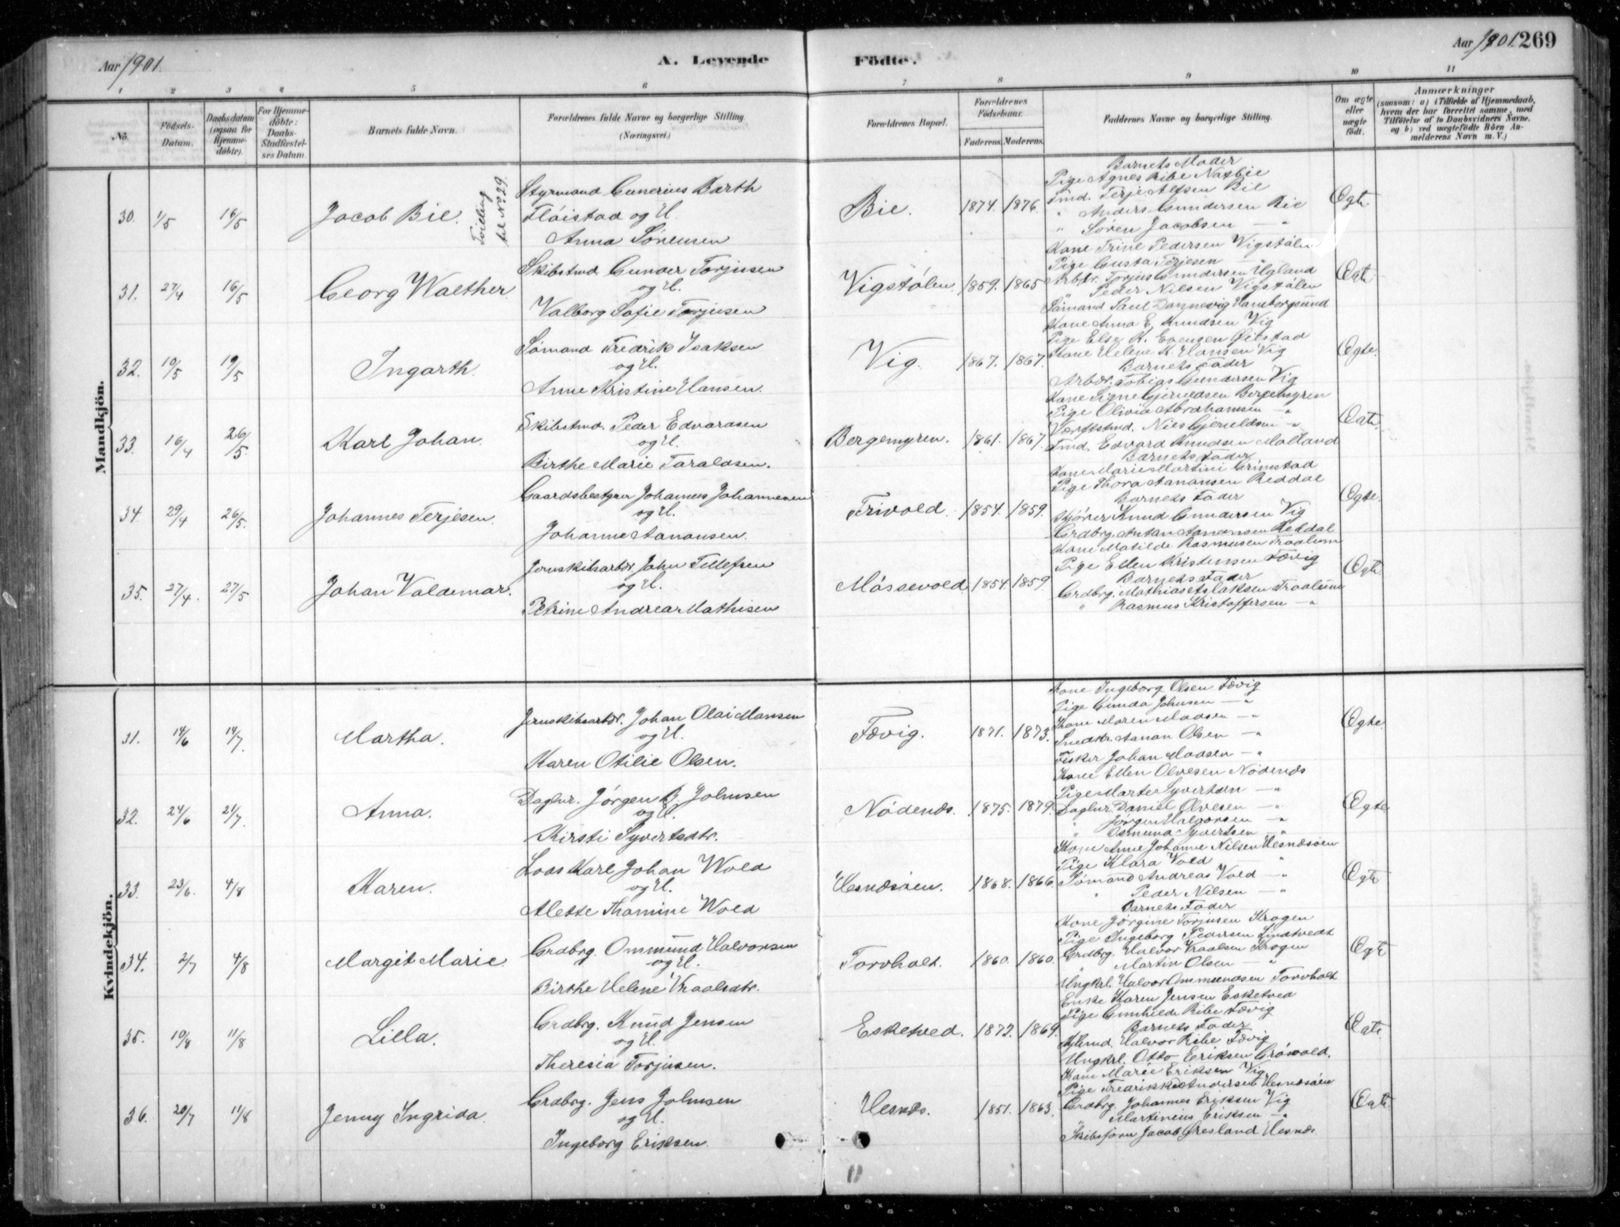 Aar 1901.
A. Levende
Födte.
Aar 1901. 269
1 2 3 4 5 6 7 8 9 10 11
No.
Födsels-Datum.
Daabsdatum (ogsaa for Hjemmedöbte).
For Hjemmedöbte: Daabs-Stadfæstelses Datum.
Barnets fulde Navn.
Forældrenes fulde Navne og borgerlige Stilling. (Næringsvei.)
Forældrenes Bopæl.
Forældrenes Födselsaar.
Faderens. Moderens.
Faddernes Navne og borgerlige Stilling.
Om ægte eller uægte födt.
Anmærkninger
(saasom: a) i Tilfælde af Hjemmedaab, hvem der har forrettet samme, med Tilföielse af to Daabsvidners Navne, og b) ved uægtefödte Börn Anmelderens Navn m. V.)
Mandkjön.
30. 1/5 16/5 Jacob Bie. Tvilling til No. 29.
Styrmand Gunerius Barth
Flöistad og H.
Anna Sörensen
Bie. 1874. 1876.
Barnets Moder
Pige Agnes Ribe Naxbie
Smd. Terje Alfsen Bie
" Anders Gundersen Bie
" Soren Jacobsen "
Ægt.
31. 27/4 16/5 Georg Walther
Skibstmd. Gunder Torjusen
og H.
Valborg Sofie Torjusen
Vigstölen 1859. 1865
Kone Trine Pedersen Vigstölen
Pige Gusta Torjesen — "
Arbdr. Torjus Gundersen Ugland
" Peder Nilsen Vigstölen
Sömand Paul Dannevig Hamborgsund
Ægt.
32. 10/5 19/5 Ingarth
Sömand Fredrik Isaksen
og H.
Anne Kristine Hansen.
Vig. 1867. 1867
Kone Anna E. Knudsen Vig
Pige Elsy K. Evensen Gitstad
Kone Helene K. Hansen Vig
Barnets Fader
Arbdr. Tobias Gundersen Vig
Ægte.
33. 16/4 26/5 Karl Johan.
Skibstmd. Peder Edvardsen
og H.
Birthe Marie Taraldsen.
Bergemyren. 1861. 1867.
Kone Signe Gjeruldsen Bergemyren
Pige Olivia Abrahamsen — "
Værftstmd. Nils Gjeruldsen "
Smd. Edvard Knudsen Molland
Barnets Fader
Ægt.
34. 29/4 26/5. Johannes Terjesen.
Gaardsbestyrer Johannes Johannesen
og H.
Johanne Aanonsen.
Frivold. 1854. 1859.
Kone Marie Martini Grimstad
Pige Thora Aanonsen Reddal
Barnets Fader
Skjöner Knud Gundersen Vig
Grdbrg. Anton Aanonsen Reddal
Ægte.
35. 27/4. 27/5 Johan Valdemar.
Jernskibsarbdr. John Tellefsen
og H.
Petrine Andrea Mathisen
Mössevold 1854. 1859
Kone Matilde Rasmussen Traalum
Pige Ellen Kristensen Fævig
Barnets Fader
Grdbrg. Mathias Aslaksen Traalum
" Rasmus Kristoffersen — "
Ægt
Kvindekjön.
31. 14/6 14/7. Martha.
Jernskibsarbdr. Johan Olai Mansen
og H.
Karen Otilie Olsen.
Fævig. 1871. 1873.
Kone Ingeborg Olsen Fævig
Pige Gunda Johnsen — "
Kone Maren Madsen — "
Snedkr. Aanon Olsen — "
Fisker Johan Madsen — "
Ægte
32. 24/6 21/7. Anna.
Daglnr. Jörgen B. Johnsen
og H.
Kirsti Syvertsdtr.
Nödenæs. 1875. 1879.
Kone Ellen Olvesen Nödenæs
Pige Marte Syvertsen — "
Daglnr. Daniel Olvesen — "
" Jörgen Halvorsen — "
" Osmund Syvertsen "
Ægte
33. 23/6. 4/8 Karen.
Lods Karl Johan Wold
og H.
Alette Thomine Wold
Hesnæsöen. 1868. 1866
Kone Anne Johanne Nilsen Hesnæsöen
Pige Klara Vold "
Sömand Andreas Vold — "
" Peder Nilsen — "
Barnets Fader
Ægte
34. 2/7 4/8 Margit Marie
Grdbrg. Ommund Halvorsen
og H.
Birthe Helene Vraalsdtr.
Torvholt. 1860. 1860
Kone Jörgine Torjusen Krogen
Pige Ingeborg Pedersen Lindtvedt
Grdbrg. Halvor Vraalsen Krogen
" Martin Olsen — "
Ungkrl. Halvor Ommundsen Torvholt
Ægt
35. 10/8 11/8 Lilla.
Grdbrg. Knud Jensen
og H.
Theresia Torjusen.
Esketved. 1872. 1869.
Enke Karen Jensen Esketved
Pige Gunhilde Ribe Fævig
Barnets Fader
Halvor Ribe Fævig
Ungkrl. Otto Eriksen Grövold.
Ægt.
36. 20/7 11/8 Jenny Ingrida.
Grdbrg. Jens Johnsen
og H.
Ingeborg Eriksen.
Hesnæs. 1851. 1863.
Kone Marie Eriksen Vig
Pige Fredrikke Andersen Hesnæsöen
Grdbrg Johannes Eriksen Vig
" Martinius Eriksen — "
Skibsförer Jacob Gresland Hesnæs
Ægt